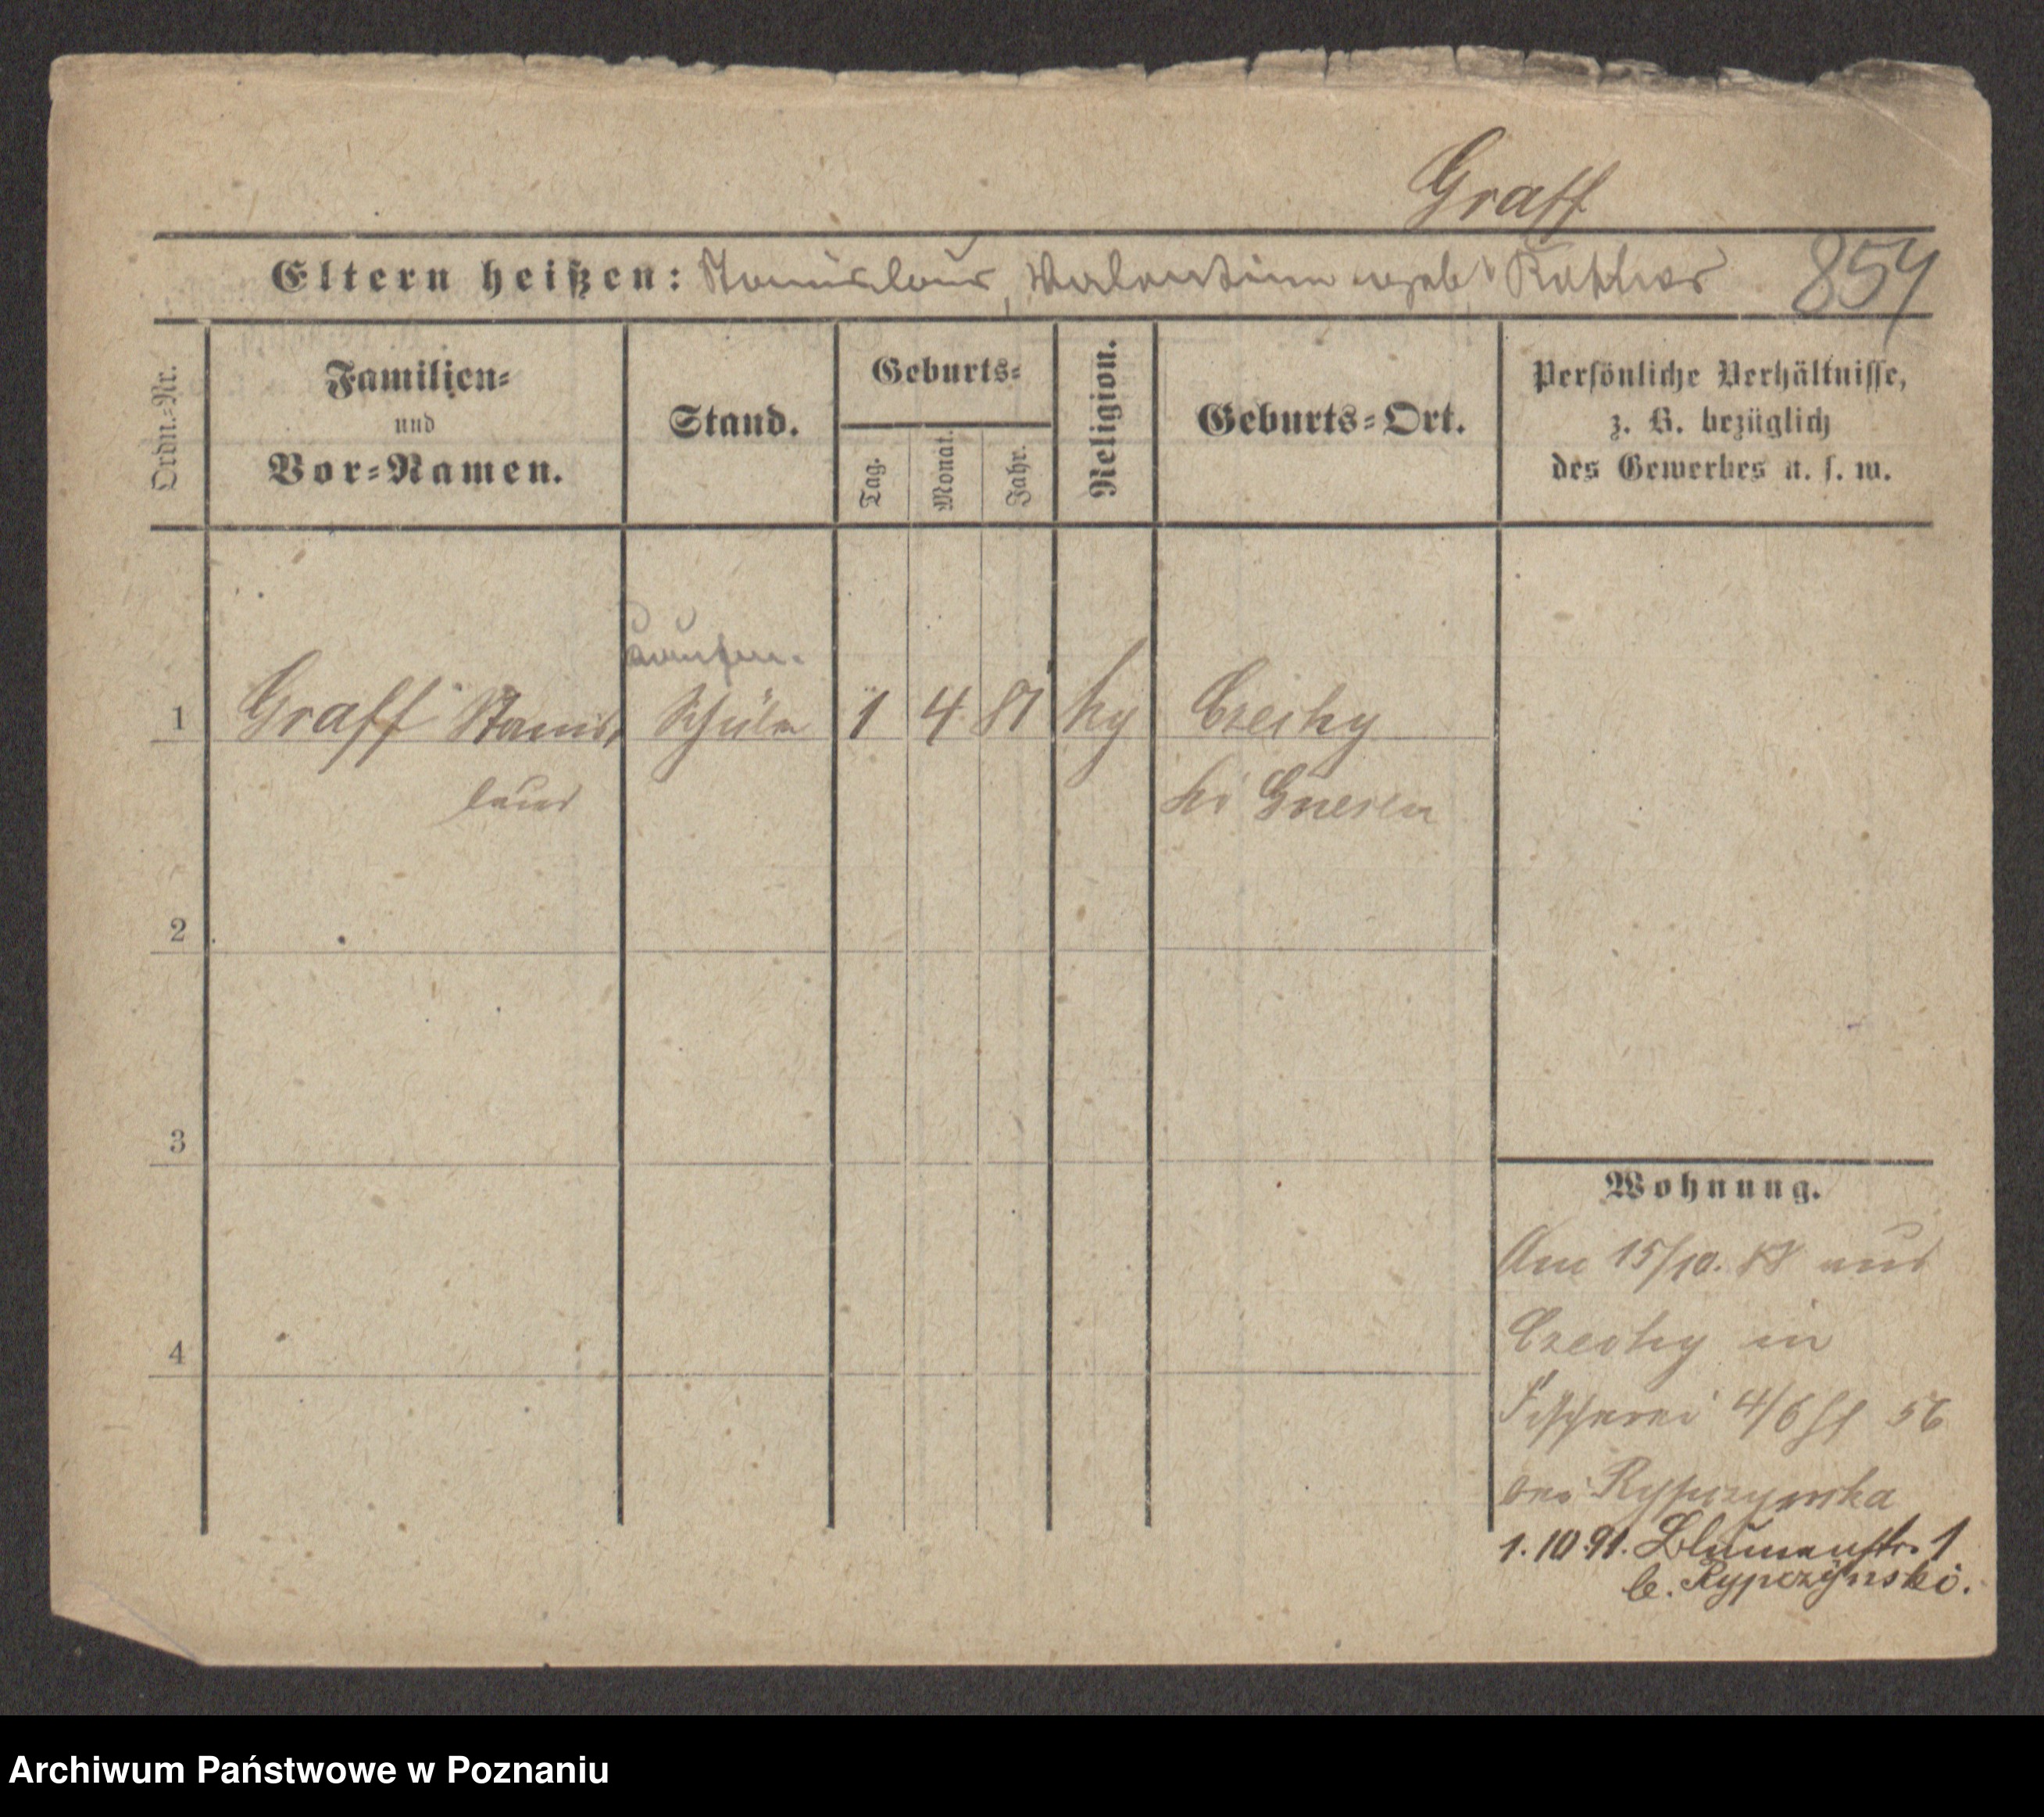 Graff
Eltern heißen: Stanislaus, Valentine geb. 854
Ordn.-Nr.
Familien-
und
Vor-Namen.
Stand.
Geburts-
Tag.
Monat.
Jahr.
Religion.
Geburts-Ort.
Persönliche Verhältnisse,
z. B. bezüglich
des Gewerbes u. s. w.
1 Graff Stanis- Schüler 1 4 81 kg Czechy
laus bei Gnesen
2
3
4
Wohnung.
Am 15/10. 88 aus
Czechy in
Fischerei 4/6 56
bei Rypczynska
1.10.91. Blumenstr. 1
b. Rypczynski.
Archiwum Państwowe w Poznaniu